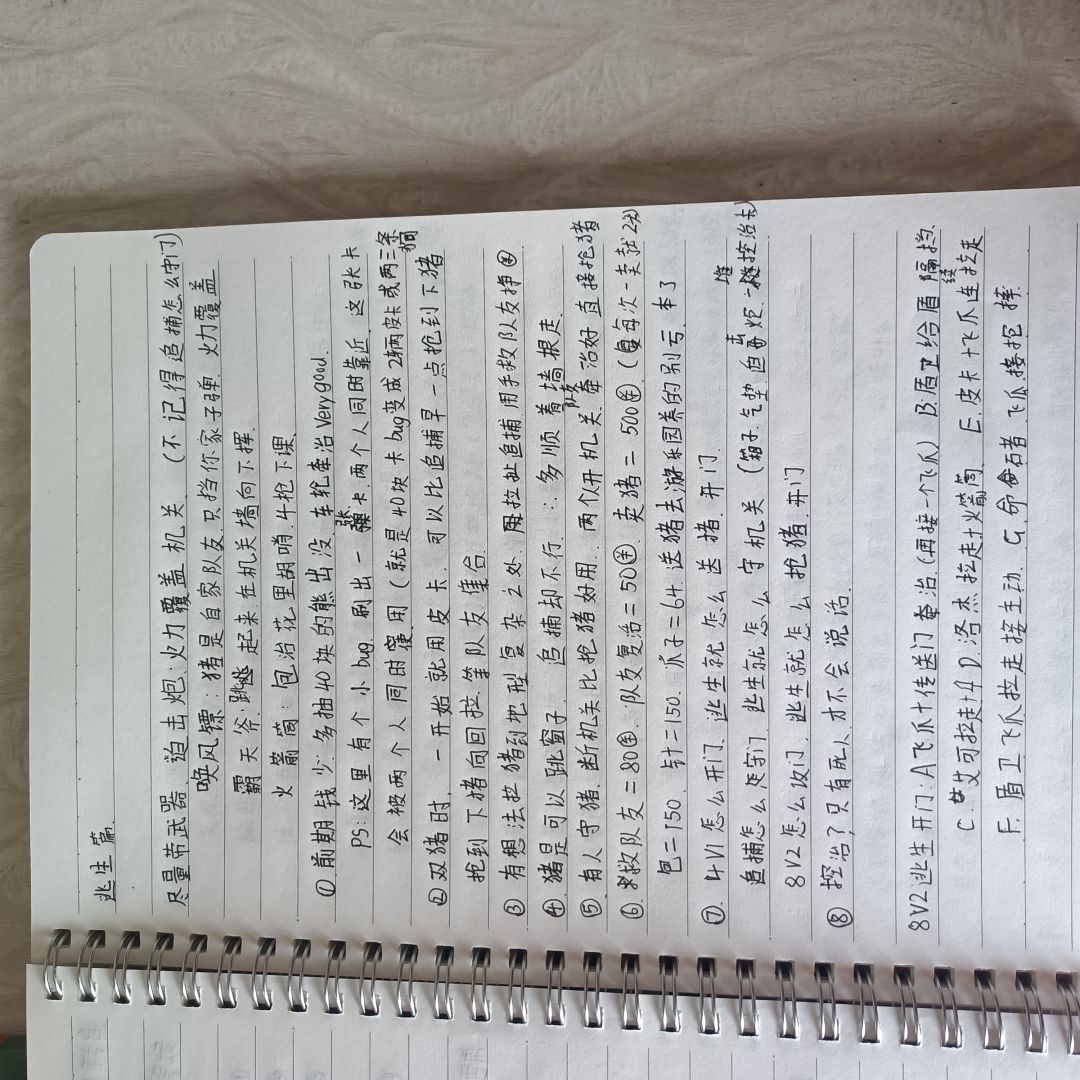 逃生篇
尽量带武器、迫击炮：火力覆盖机关 （不记得追捕怎么守门）
唤风镖：猪是自家队友只挡你家子弹 火力覆盖
霸天斧：跳起来在机关墙向下挥
火箭筒：包治花里胡哨 4枪下课
① 前期钱少：多抽40块的熊出没 车轮牵治Very good.
PS：这里有个小bug 刷出一张卡 两个人同时靠近 这张卡
会被两个人同时使用（就是40块卡bug变成2辆皮卡或两三条狗
② 双猪时，一开始就用皮卡，可以比追捕早一点抢到下猪
抢到下猪向回拉，等队友集合
③ 有想法拉猪到地形复杂之处 用拉扯追捕 用手救队友挣￥
④ 猪是可以跳窗子，追捕却不行 ∴多顺着墙根走
⑤ 有人守猪 断机关比抢猪好用，两个以开机关，队友牵治好直接抢猪
⑥ 救队友=80￥ 队友复活=50￥ 卖猪=500￥（每次一卖就2头）
包=150 针=150 爪子=64 送猪去游乐园养的别亏本了
⑦ 4V1怎么开门，逃生就怎么送猪开门
追捕怎么守门，逃生就怎么守机关（箱子.气垫.迫击炮.一堆控治卡）
8V2怎么攻门，逃生就怎么抢猪开门
⑧ 控治？只有死人才不会说话
8V2逃生开门：A飞爪+传送门牵治（再接一个飞爪） B：盾卫给盾隔挡
C：艾可拉走+4 D：洛杰拉走+火箭筒 E：皮卡+飞爪连续拉走
F：盾卫飞爪拉走接主动 G：命石者飞爪接挖摔